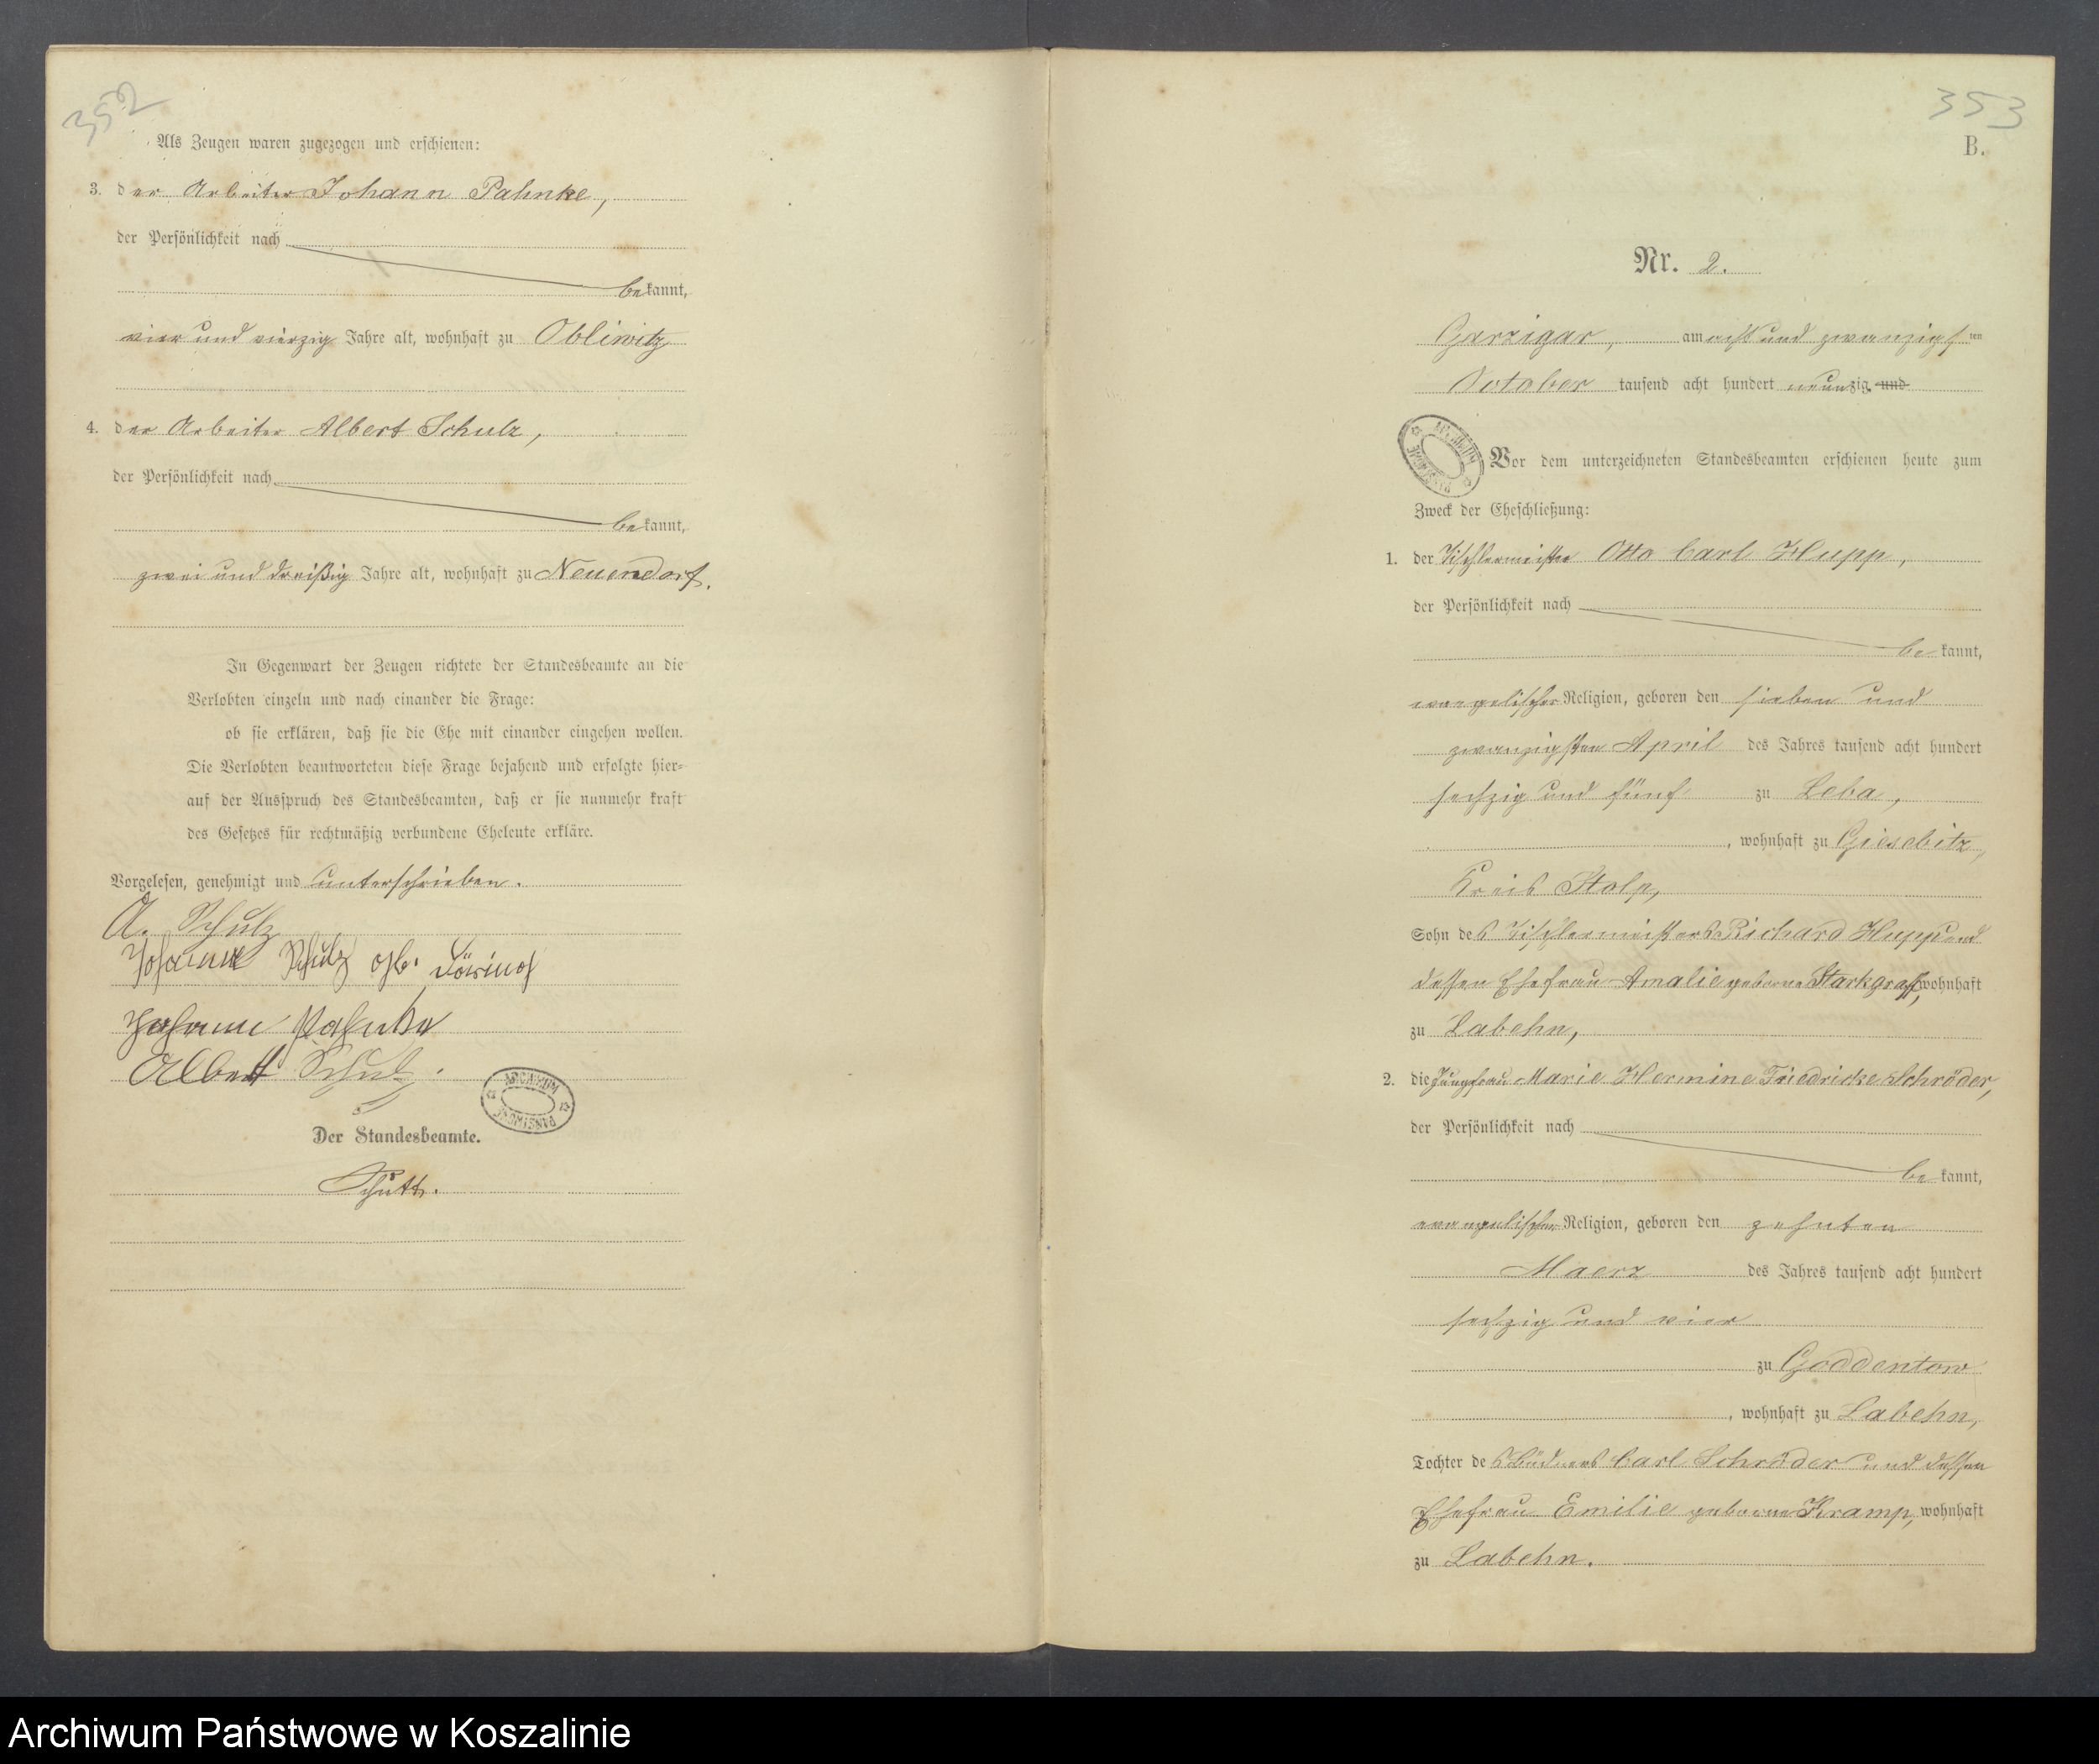 352
Als Zeugen waren zugezogen und erschienen:
3. der Arbeiter Johann Pahnke,
der Persönlichkeit nach
bekannt,
vier und vierzig Jahre alt, wohnhaft zu Obliwitz
4. der Arbeiter Albert Schulz,
der Persönlichkeit nach
bekannt,
zwei und dreißig Jahre alt, wohnhaft zu Neuendorf.
In Gegenwart der Zeugen richtete der Standesbeamte an die
Verlobten einzeln und nach einander die Frage:
ob sie erklären, daß sie die Ehe mit einander eingehen wollen.
Die Verlobten beantworteten diese Frage bejahend und erfolgte hier-
auf der Ausspruch des Standesbeamten, daß er sie nunmehr kraft
des Gesetzes für rechtmäßig verbundene Eheleute erkläre.
Vorgelesen, genehmigt und unterschrieben.
A. Schulz
Johanne Schulz geb.
Johann Pahnke
Albert Schulz
ARCHIWUM PAŃSTWOWE
Der Standesbeamte.
353
B.
Nr. 2.
Garzigar, am acht und zwanzigsten
October tausend acht hundert neunzig und
ARCHIWUM PAŃSTWOWE
Vor dem unterzeichneten Standesbeamten erschienen heute zum
Zweck der Eheschließung:
1. der Tischlermeister Otto Carl Hupp,
der Persönlichkeit nach
bekannt,
evangelischer Religion, geboren den sieben und
zwanzigsten April des Jahres tausend acht hundert
sechzig und fünf zu Leba,
, wohnhaft zu Giesebitz,
Kreis Stolp,
Sohn des Tischlermeisters Richard Hupp und
dessen Ehefrau Amalie geborne Starkgraff, wohnhaft
zu Labehn,
2. die Jungfrau Marie Hermine Friedricke Schröder,
der Persönlichkeit nach
bekannt,
evangelischer Religion, geboren den zehnten
Maerz des Jahres tausend acht hundert
sechzig und vier
zu Goddentow
, wohnhaft zu Labehn,
Tochter des Büdners Carl Schröder und dessen
Ehefrau Emilie geborne Kramp, wohnhaft
zu Labehn.
Archiwum Państwowe w Koszalinie